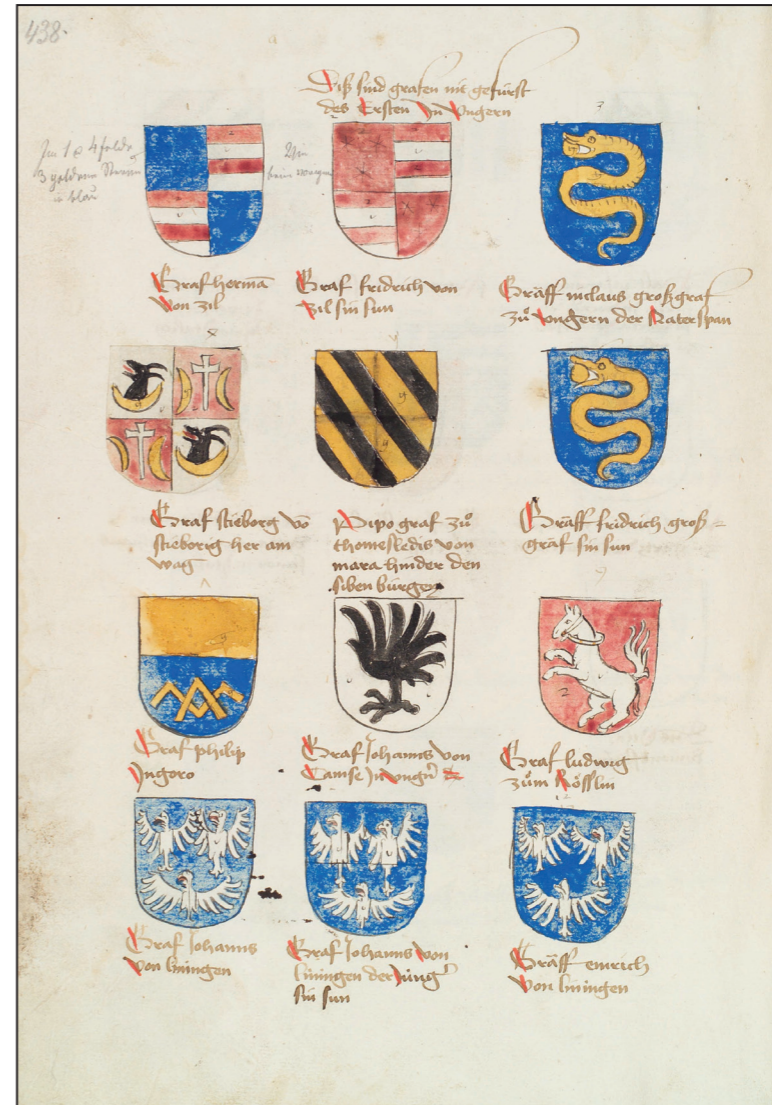 438.
Diß sind grafen nit gefürst
des Ersten Jn Vngern
Jm 1 & 4 felde
3 goldene Sterne
in blau
Graf herman̄
von zil
Graf fridrich von
zil sin sun
Gräff niclaus großgraf
zů vngern der Naterspan
Graf stieborg vō
stieborig her am
wag
Pipo graf zů
thomeskedis von
mara hinder den
siben bürgen
Gräff fridrich groß=
graf sin sun
Graf philip
Jngoro
Graf Johanns von
Camse Jn vngn̄
Graf ludwig
zům Rösslin
Graf Johanns
von liningen
Graf Johanns von
liningen der Jüng
sin sun
Gräff emrich
von liningen